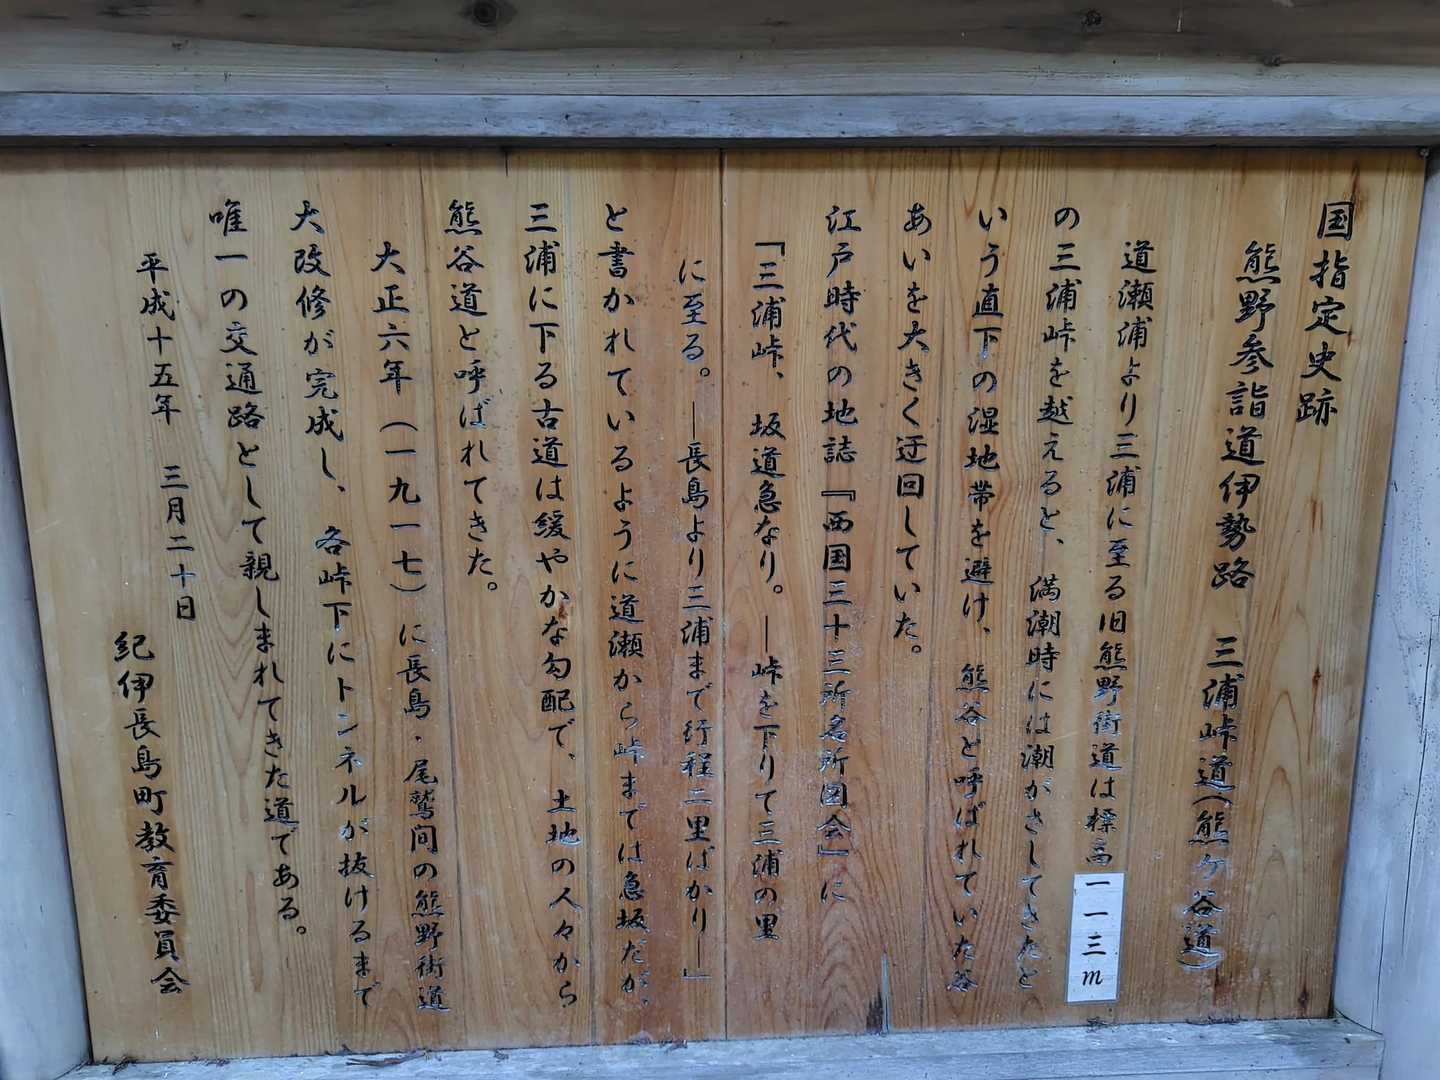 国指定史跡
熊野参詣道伊勢路　三浦峠道(熊ヶ谷道)
道瀬浦より三浦に至る旧熊野街道は標高一一三m
の三浦峠を越えると、満潮時には潮がさしてきたと
いう直下の湿地帯を避け、熊谷と呼ばれていた谷
あいを大きく迂回していた。
江戸時代の地誌『西国三十三所名所図会』に
「三浦峠、坂道急なり。―峠を下りて三浦の里
に至る。―長島より三浦まで行程二里ばかり―」
と書かれているように道瀬から峠までは急坂だが、
三浦に下る古道は緩やかな勾配で、土地の人々から
熊谷道と呼ばれてきた。
大正六年(一九一七)に長島・尾鷲間の熊野街道
大改修が完成し、各峠下にトンネルが抜けるまで
唯一の交通路として親しまれてきた道である。
平成十五年　三月二十日
紀伊長島町教育委員会